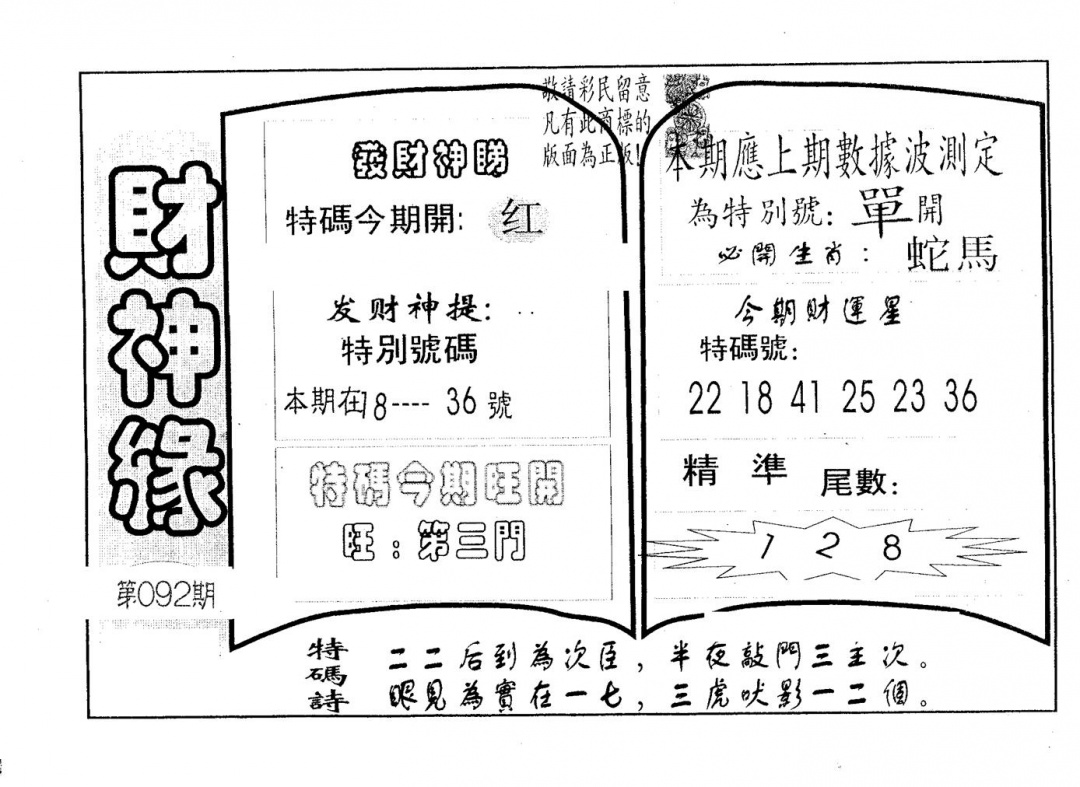 財神緣
第092期
敬請彩民留意
凡有此商標的
版面為正版!
發財神睇
特碼今期開: 红
发财神提:
特別號碼
本期在8---- 36 號
特碼今期旺開
旺:第三門
本期應上期數據波測定
為特別號: 單開
必開生肖: 蛇馬
今期財運星
特碼號:
22 18 41 25 23 36
精準 尾數:
1 2 8
特碼詩
二二后到為次臣,半夜敲門三主次。
眼見為實在一七,三虎吠影一二個。